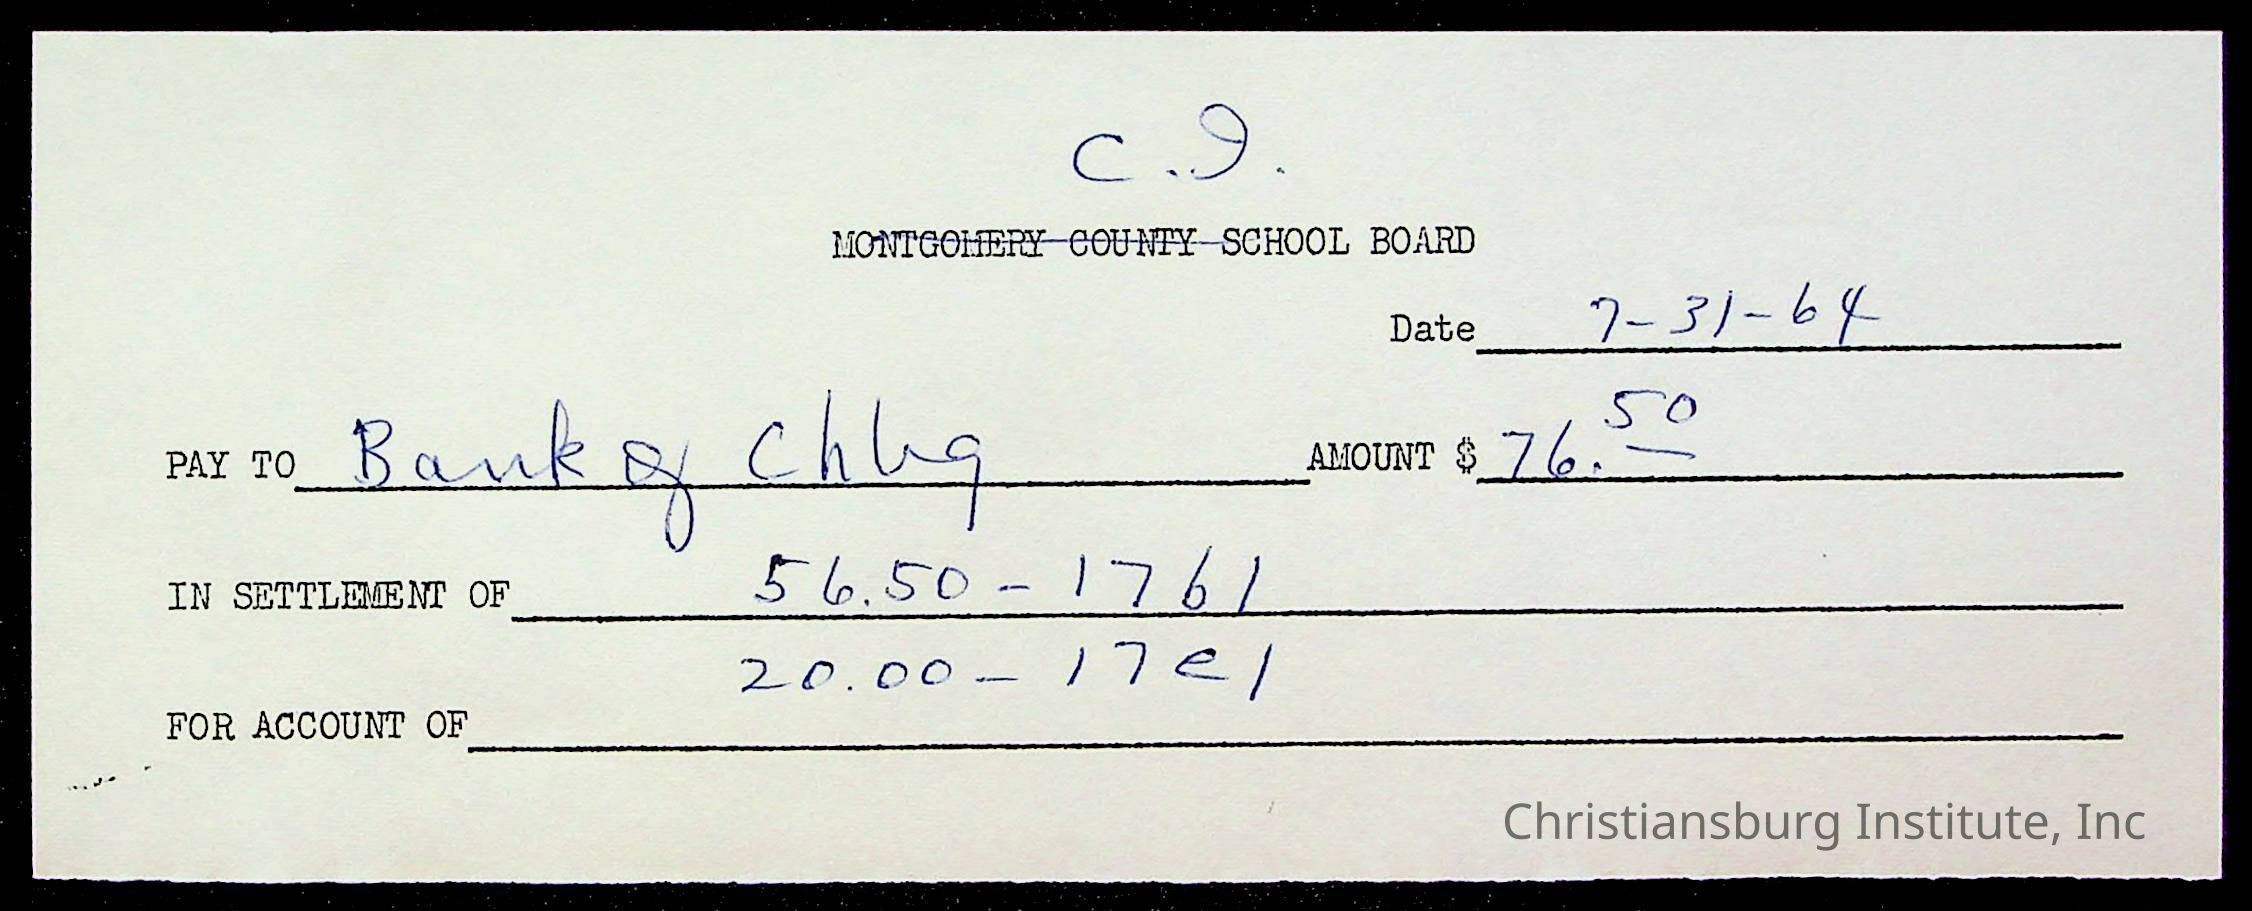 C.I.
MONTGOMERY COUNTY SCHOOL BOARD
Date 7-31-64
PAY TO Bank of Chbg AMOUNT $ 76.50
IN SETTLEMENT OF 56.50 - 1761
20.00 - 17e1
FOR ACCOUNT OF
Christiansburg Institute, Inc